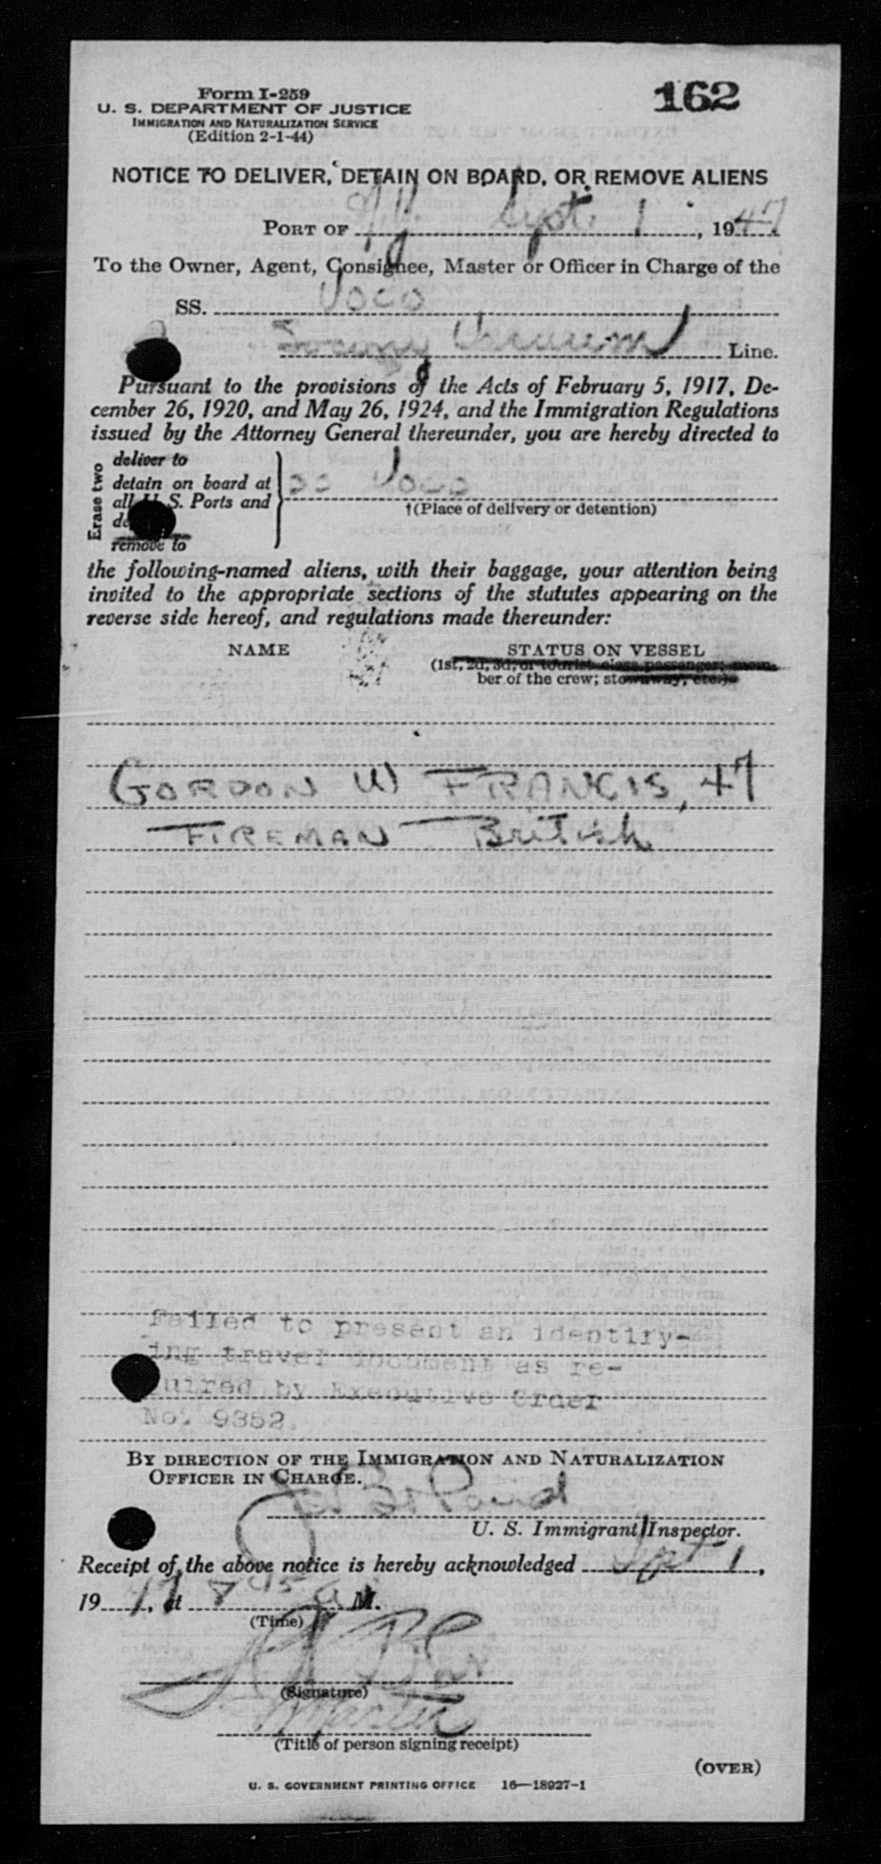 Form I-259
162
U. S. DEPARTMENT OF JUSTICE
IMMIGRATION AND NATURALIZATION SERVICE
(Edition 2-1-44)
NOTICE TO DELIVER, DETAIN ON BOARD, OR REMOVE ALIENS
PORT OF N Y Sept. 1, 1947
To the Owner, Agent, Consignee, Master or Officer in Charge of the
SS. Voco
Socony Vacuum Line.
Pursuant to the provisions of the Acts of February 5, 1917, De-
cember 26, 1920, and May 26, 1924, and the Immigration Regulations
issued by the Attorney General thereunder, you are hereby directed to
Erase two
deliver to
detain on board at
all U. S. Ports and
remove to
SS Voco
†(Place of delivery or detention)
the following-named aliens, with their baggage, your attention being
invited to the appropriate sections of the statutes appearing on the
reverse side hereof, and regulations made thereunder:
NAME STATUS ON VESSEL
(1st, 2d, 3d, or tourist class passenger; mem-
ber of the crew; stowaway, etc.)
GORDON W FRANCIS, 47
FIREMAN British
Failed to present an identify-
ing travel document as re-
quired by Executive Order
No. 9352.
BY DIRECTION OF THE IMMIGRATION AND NATURALIZATION
OFFICER IN CHARGE.
U. S. Immigrant Inspector.
Receipt of the above notice is hereby acknowledged Sept 1,
1947, at 8 45 a M.
(Time)
(Signature)
Master
(Title of person signing receipt)
(OVER)
U. S. GOVERNMENT PRINTING OFFICE 16—18927-1